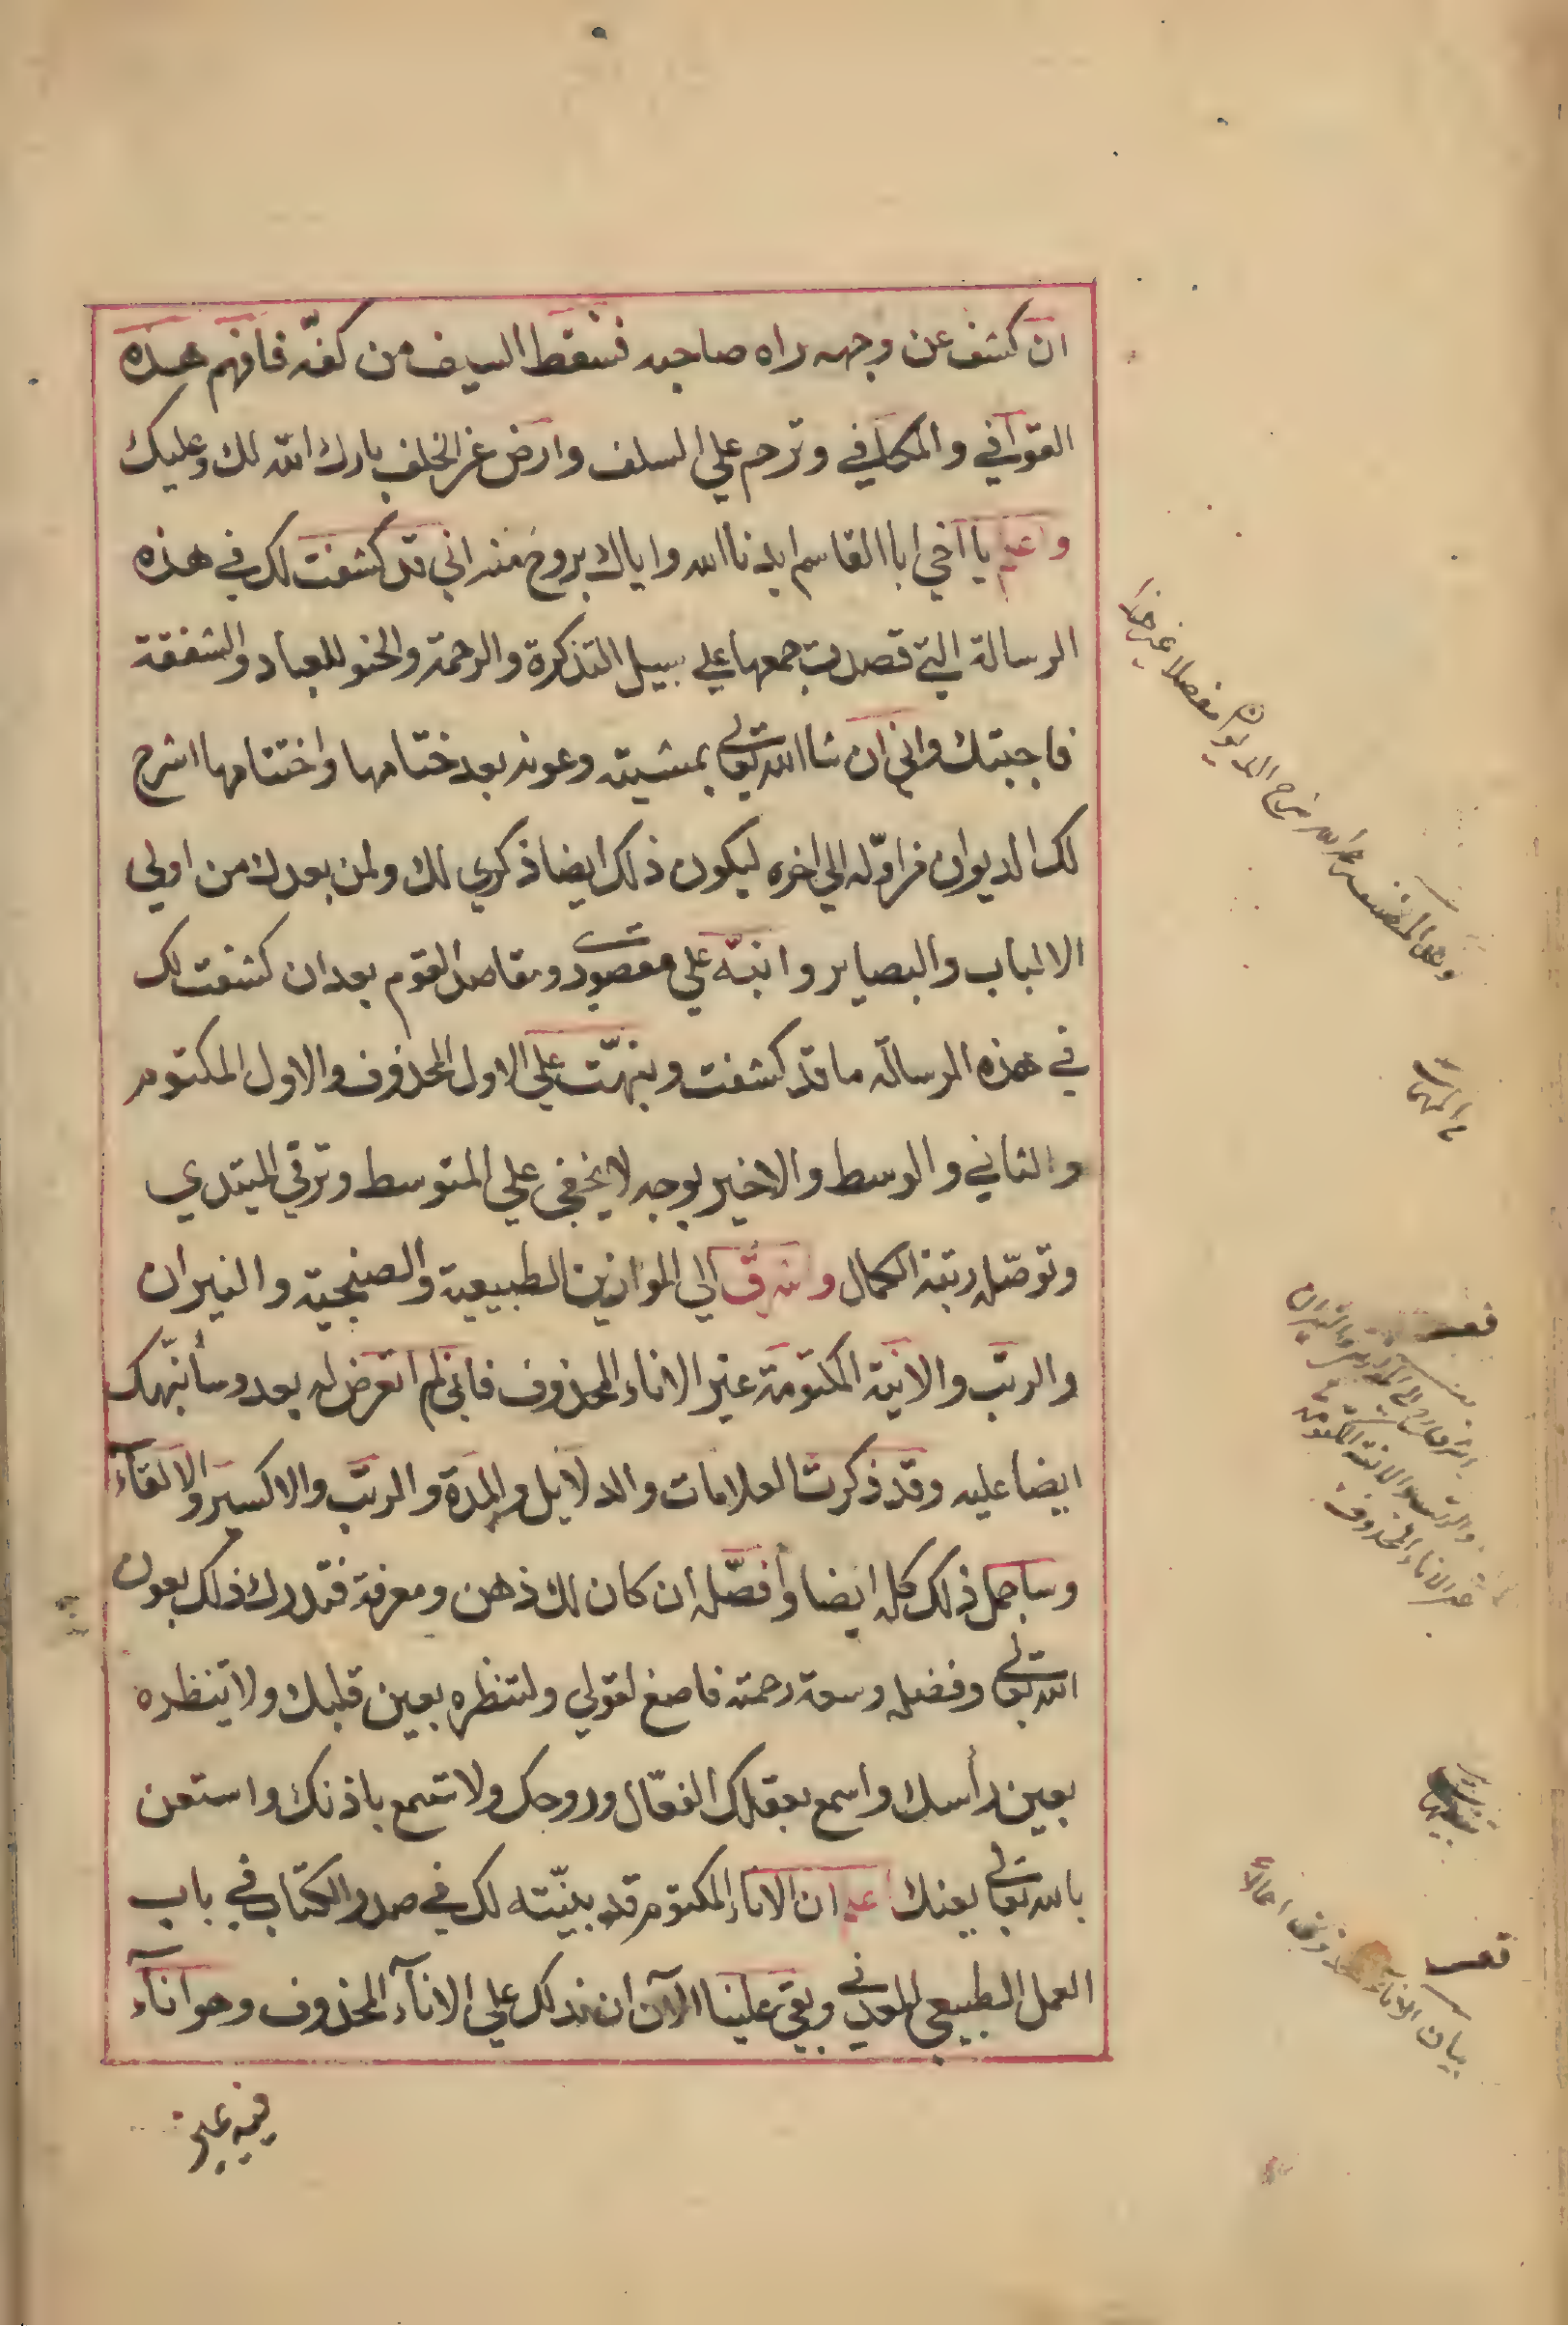 ان كشف عن وجهه راه صاحبه فسقط السيف من كفّه فافهم هذه
القوافي والمكافي وترحم علي السلف وارض عن الخلف بارك الله لك وعليك
واعلم يا اخي ابا القاسم ايدنا الله واياك بروح منه اني قد كشفت لك في هذه
الرسالة التي قصدت جمعها علي سبيل التذكرة والرحمة والحنو للعباد والشفقة
فاجبتك واني ان شا الله تعالي بمشيته وعونه بعد ختامها واختتامها اشرح
لك الديوان من اوّله الي اخره ليكون ذلك ايضا ذكري لك ولمن بعدك من اولي
الالباب والبصاير وانبّه علي مقصودي ومقاصد القوم بعد ان كشفت لك
في هذه الرسالة ما قد كشفت ونبهّت علي الاول المحذوف والاول المكتوم
والثاني والوسط والاخير بوجه لا يخفي علي المتوسط وترقي المبتدي
وتوصّله رتبة الكمال واشرق الي الموازين الطبيعية والصنجية والنيران
والرتب والانية المكتومة عير الاناء المحذوف فاني لم اتعرض له بعد وسأنبّهك
ايضا عليه وقد ذكرت العلامات والدلايل والمدة والرتب والاكسير والالقآء
وساجمل ذلك كله ايضا وأفصّله ان كان لك ذهن ومعرفة فتدرك ذلك بعون
الله تعالي وفضله وسعة رحمته فاصغ لقولي ولتنظره بعين قلبك ولا تنظره
بعين رأسك واسمع بعقلك الفعّال وروحك ولا تسمع باذنك واستعن
بالله تعالي يعنك اعلم ان الاناء المكتوم قد بينّته لك في صدر الكتاب في باب
العمل الطبيعي المعدني وبقي علينا الآن ان ندلك علي الانآء المحذوف وهو انآء
فيه عير
وعد المصنف رحمه الله شرح الديوان مفصلا غير هذا
والرتب والانية المكتومة
غير الاناء المحذوف
بيان الاناء المحذوف اجمالا